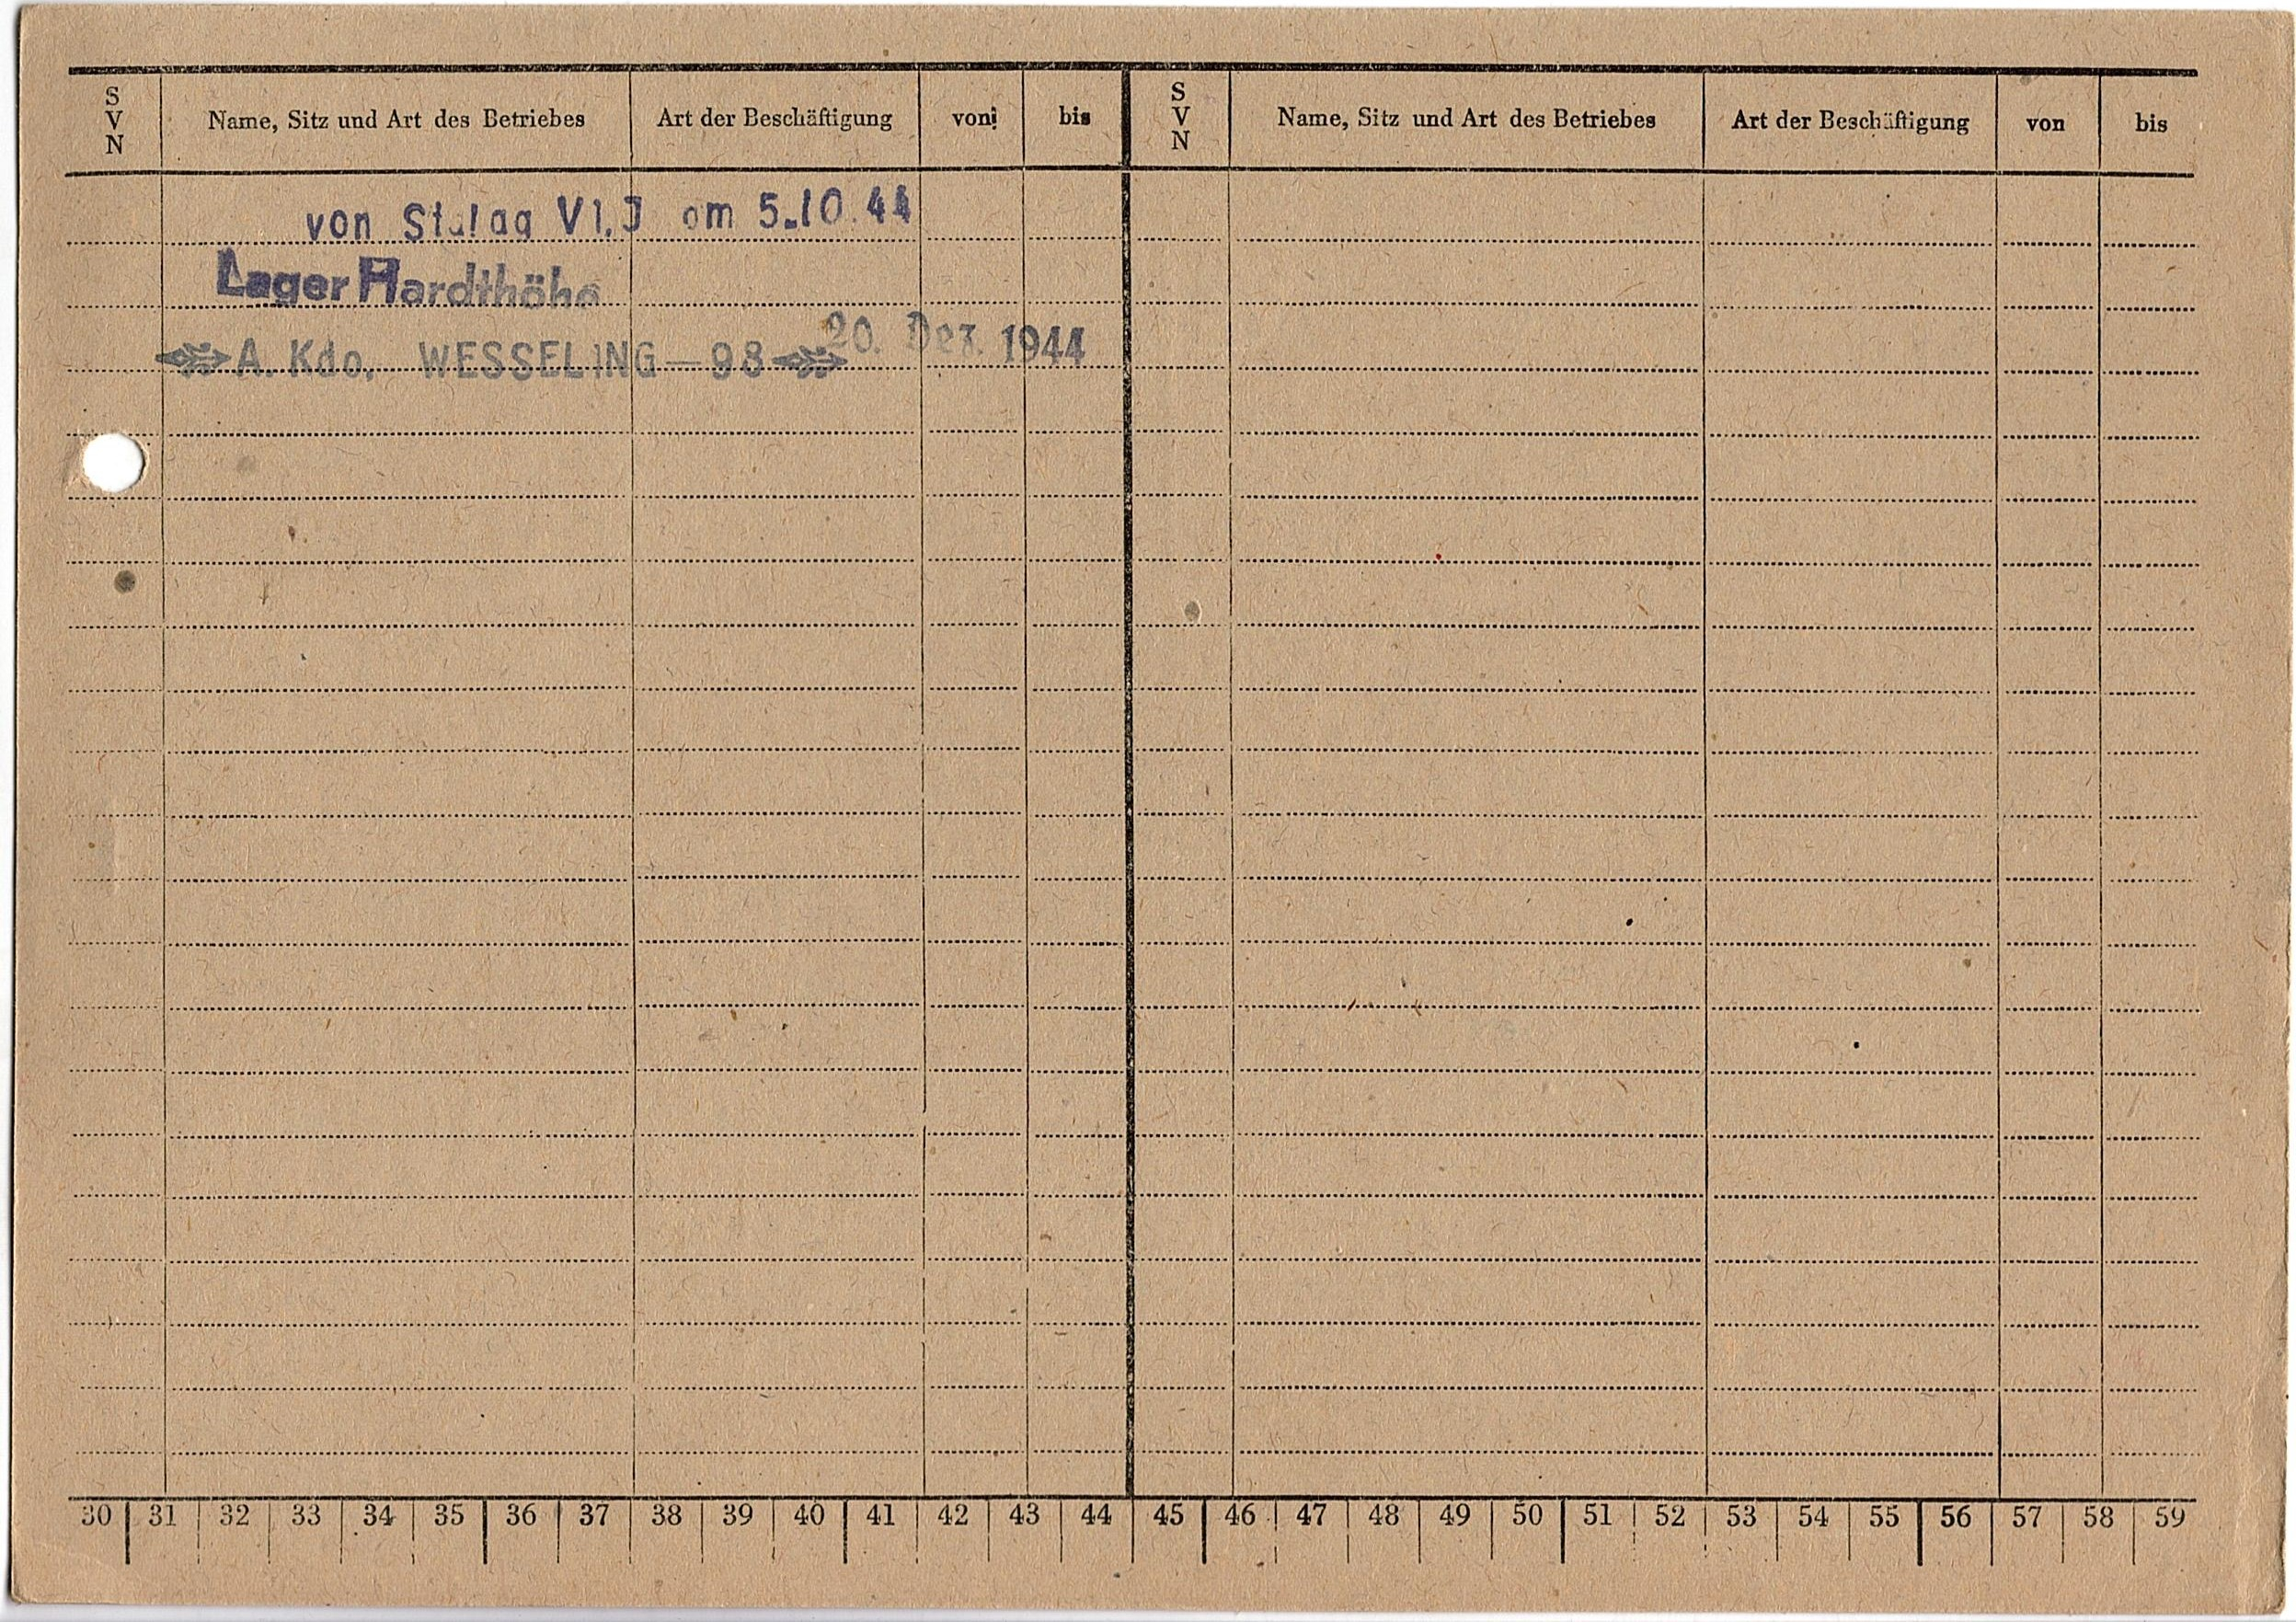 S V N Name, Sitz und Art des Betriebes Art der Beschäftigung von bis S V N Name, Sitz und Art des Betriebes Art der Beschäftigung von bis
von Stalag VI.J am 5.10.44
Lager Hardthöhe
A. Kdo. WESSELING – 98 20. Dez. 1944
30 31 32 33 34 35 36 37 38 39 40 41 42 43 44 45 46 47 48 49 50 51 52 53 54 55 56 57 58 59